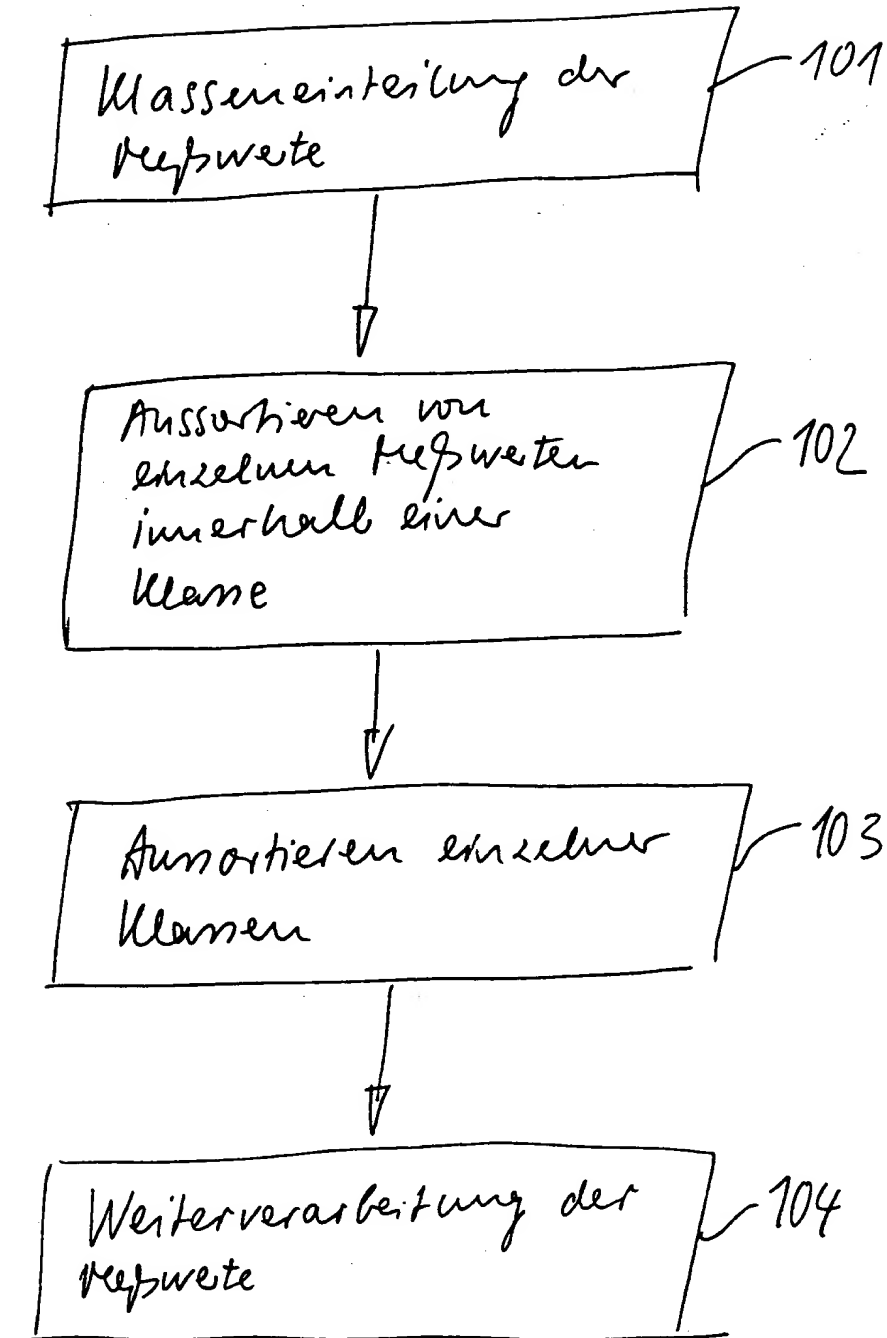 Klasseneinteilung der
Meßwerte
101
Aussortieren von
einzelnen Meßwerten
innerhalb einer
Klasse
102
Aussortieren einzelner
Klassen
103
Weiterverarbeitung der
Meßwerte
104